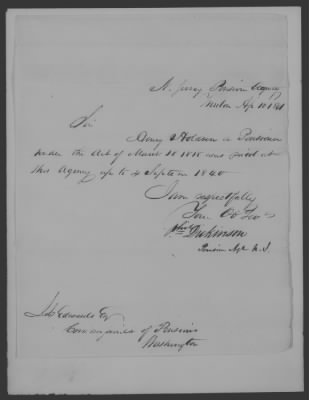 N. Jersey Pension Agency
Trenton Ap 10 1841
Sir
Henry a Pensioner
under the Act of March 18 1818 was paid at
this Agency up to 4 Septem 1840
I am respectfully
Your Ob Ser
Dickinson
Pension Agt N. J.
J L Edwards Esq
Commissioner of Pensions
Washington